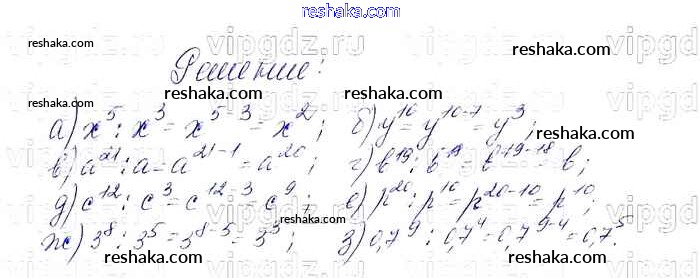 reshaka.com
vipgdz.ru reshaka.com vipgdz.ru
reshaka.com
Решение:
reshaka.com reshaka.com
а) x⁵ : x³ = x⁵⁻³ = x²; б) y¹⁰ = y¹⁰⁻⁷ = y³;
reshaka.com reshaka.com
в) a²¹ : a = a²¹⁻¹ = a²⁰; г) b¹⁹ : b¹⁸ = b¹⁹⁻¹⁸ = b;
д) c¹² : c³ = c¹²⁻³ = c⁹; е) p²⁰ : p¹⁰ = p²⁰⁻¹⁰ = p¹⁰;
reshaka.com
ж) 3⁸ : 3⁵ = 3⁸⁻⁵ = 3³; з) 0,7⁹ : 0,7⁴ = 0,7⁹⁻⁴ = 0,7⁵.
reshaka.com reshaka.com